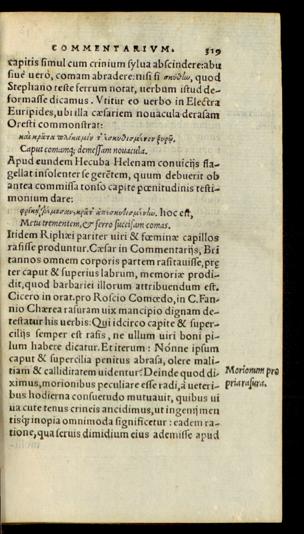 COMMENTARIVM. 319
capitis simul cum crinium sylua abscindere: abu
siuè verò, comam abradere: nisi si σκυθίζω, quod
Stephano teste ferrum notat, uerbum istud de-
formasse dicamus. Vtitur eo uerbo in Electra
Euripides, ubi illa cæsariem nouacula derasam
Oresti commonstrat:
καὶ κρᾶτα πλόκαμόν τ' ἐσκυθισμένον ξυρῷ.
Caput comamq; demessam nouacula.
Apud eundem Hecuba Helenam conuicijs fla-
gellat insolenter se gerētem, quum debuerit ob
antea commissa tonso capite pœnitudinis testi-
monium dare:
hoc est,
Metu trementem, & ferro succisam comas.
Itidem Riphæi pariter uiri & fœminæ capillos
rasisse produntur. Cæsar in Commentarijs, Bri
tannos omnem corporis partem rasitauisse, præ
ter caput & superius labrum, memoriæ prodi-
dit, quod barbariei illorum attribuendum est.
Cicero in orat. pro Roscio Comœdo, in C. Fan-
nio Chærea rasuram uix mancipio dignam de-
testatur his uerbis: Qui idcirco capite & super-
cilijs semper est rasis, ne ullum uiri boni pi-
lum habere dicatur. Et iterum: Nónne ipsum
caput & supercilia penitus abrasa, olere mali-
tiam & calliditatem uidentur? Deinde quod di-
ximus, morionibus peculiare esse radi, à ueteri-
bus hodierna consuetudo mutuauit, quibus ui
ua cute tenus crineis ancidimus, ut ingenij men
tisq́; inopia omnimoda significetur: eadem ra-
tione, qua seruis dimidium eius ademisse apud
Morionum pro
pria rasura.